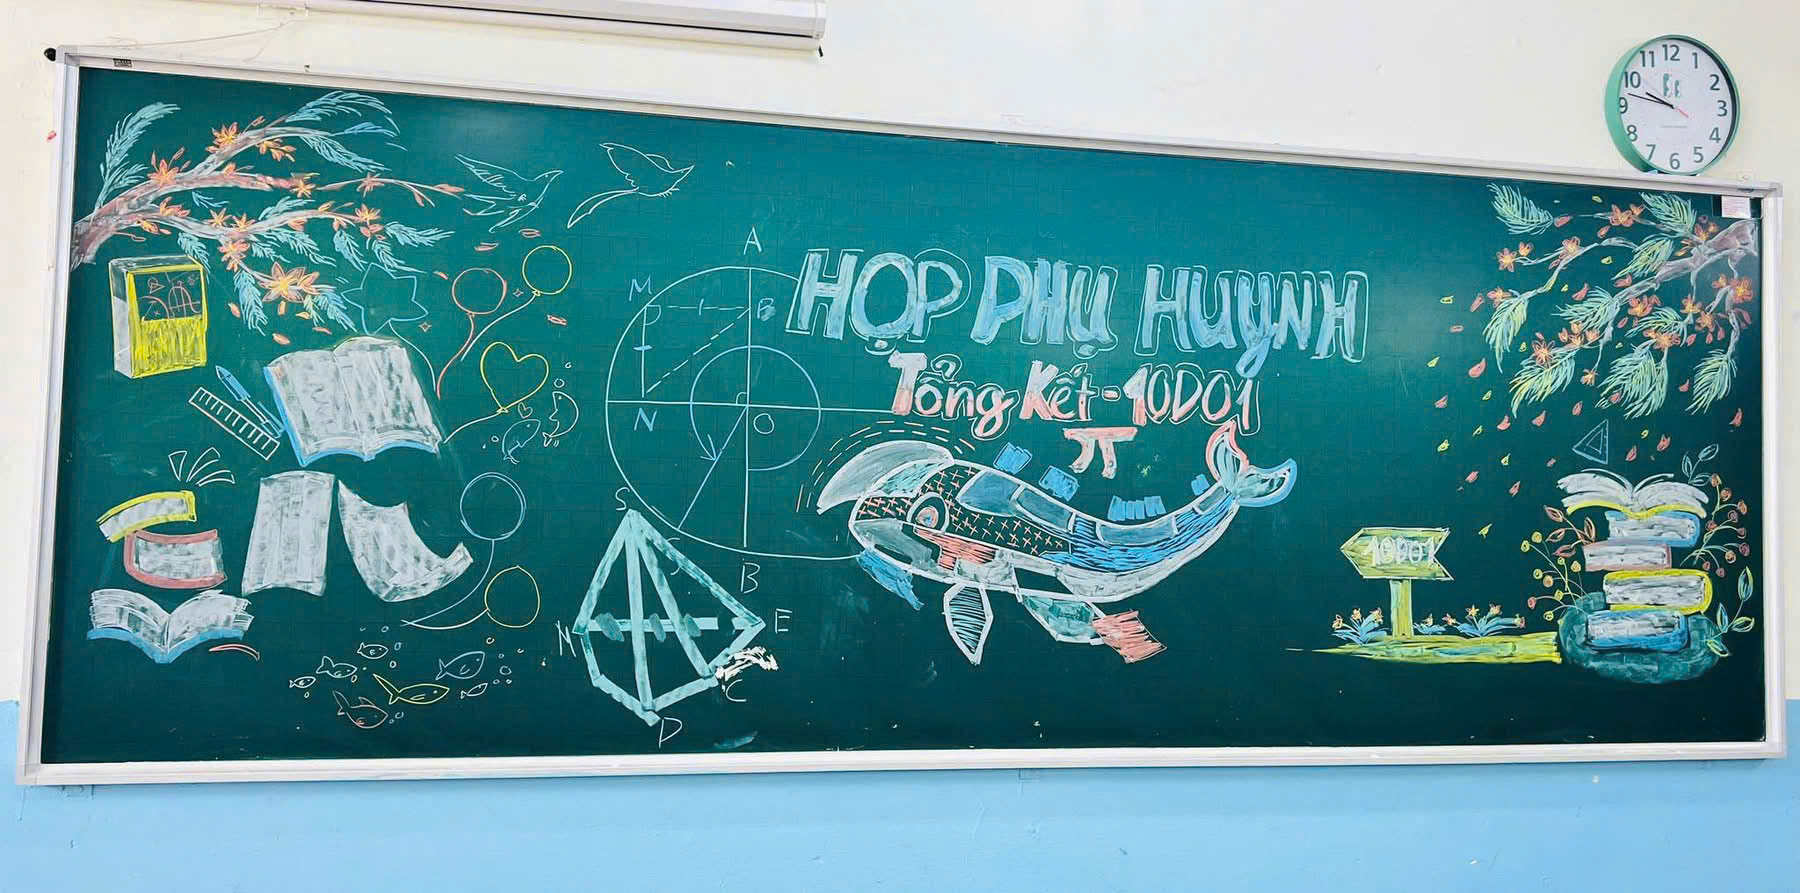 HỌP PHỤ HUYNH
Tổng Kết - 10D01
π
10D01
A
M
B
P
N
O
S
B
M
E
C
D
11 12 1
10 2
9 3
8 4
7 6 5